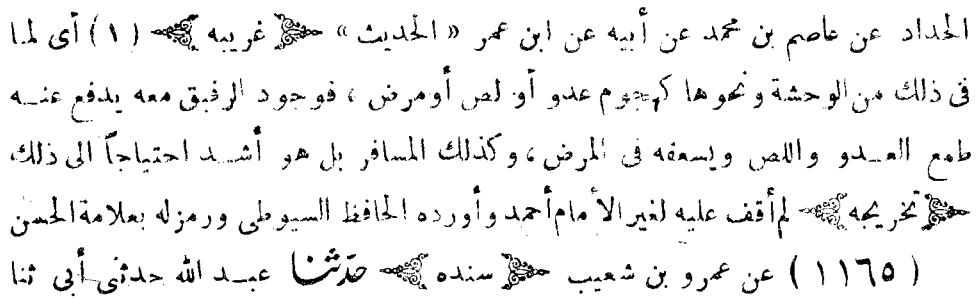 الحداد عن عاصم بن محمد عن أبيه عن ابن عمر « الحديث » غريبه (١) أى لما
فى ذلك من الوحشة ونحوها كهجوم عدو أو لص أو مرض ، فوجود الرفيق معه يدفع عنه
طمع العدو واللص ويسعفه فى المرض ، وكذلك المسافر بل هو أشد احتياجاً الى ذلك
تخريجه لم أقف عليه لغير الأمام أحمد وأورده الحافظ السيوطى ورمز له بعلامة الحسن
(١١٦٥) عن عمرو بن شعيب سنده حدثنا عبد الله حدثنى أبى ثنا